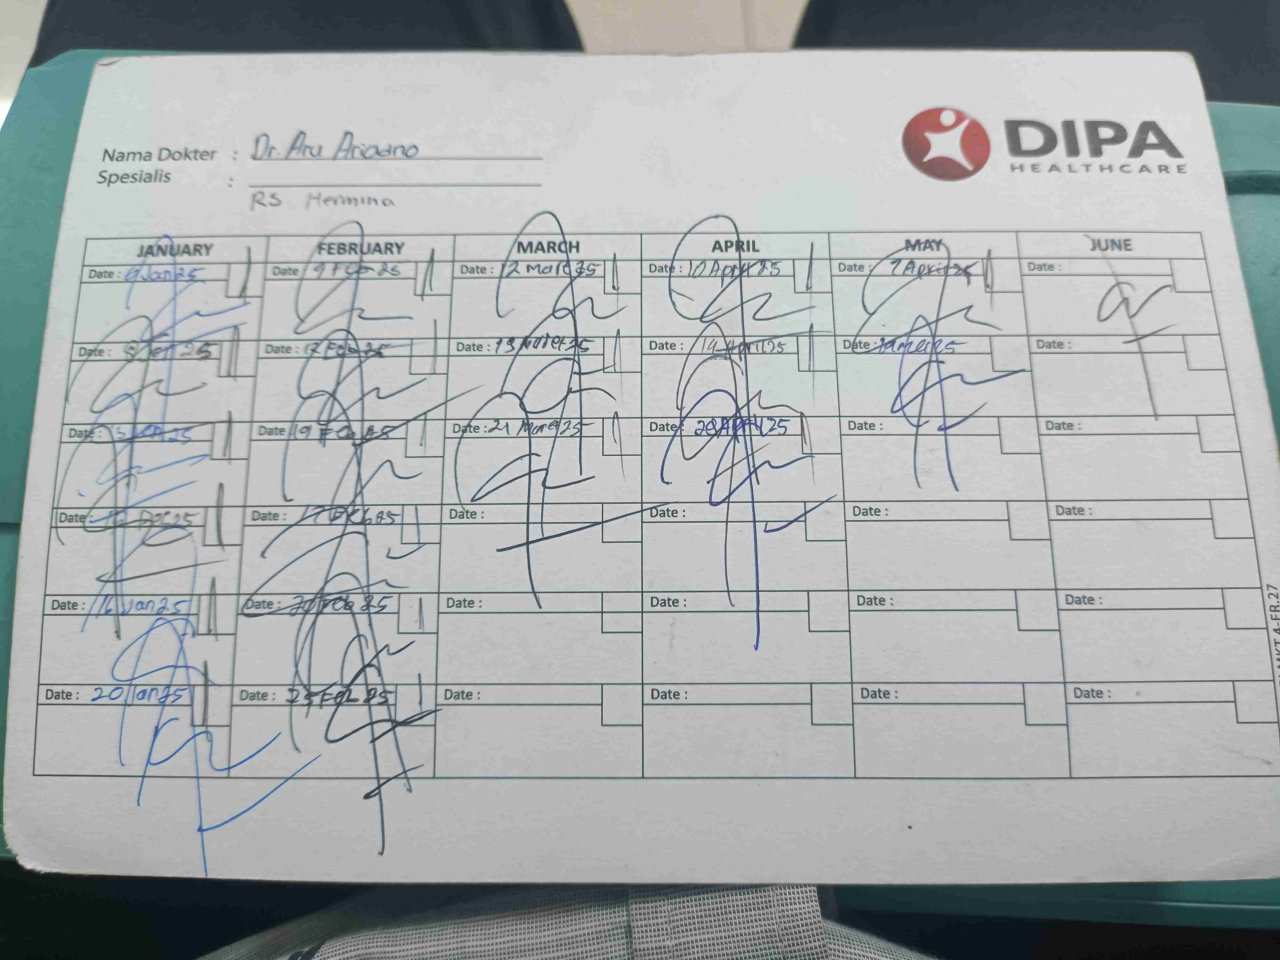 DIPA
HEALTHCARE
Nama Dokter : Dr. Aru Ariadno
Spesialis :
RS Hermina
JANUARY FEBRUARY MARCH APRIL MAY JUNE
Date : 9 Jan 25 Date : 9 Feb 25 Date : 12 Maret 25 Date : 10 April 25 Date : 7 April 25 Date :
Date : 25 Date : 12 Feb 25 Date : 13 Maret 25 Date : 14 April 25 Date : 25 Date :
Date : 25 Date : 19 Feb 25 Date : 21 Maret 25 Date : 28 April 25 Date : Date :
Date : 25 Date : 25 Date : Date : Date : Date :
Date : 16 Jan 25 Date : Feb 25 Date : Date : Date : Date :
Date : 20 Jan 25 Date : 25 Feb 25 Date : Date : Date : Date :